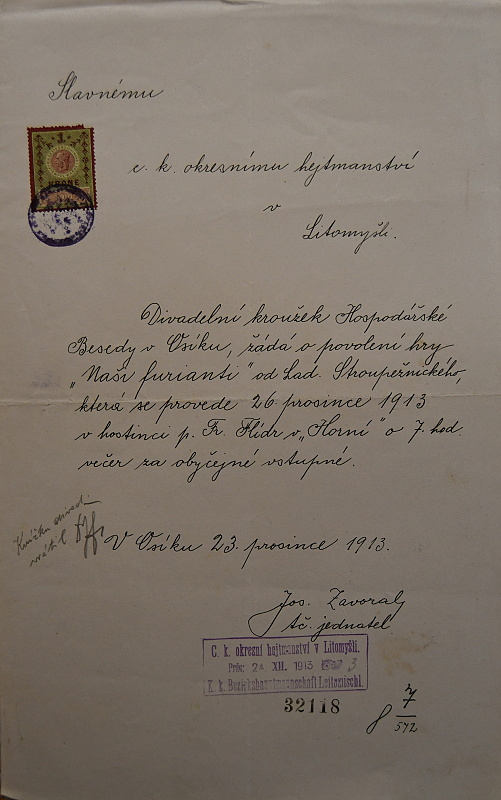 Slavnému
1
KRONE
c. k. okresnímu hejtmanství
v
Litomyšli.
Divadelní kroužek Hospodářské
Besedy v Osíku, žádá o povolení hry
„Naši furianti" od Lad. Stroupežnického,
která se provede 26. prosince 1913
v hostinci p. Fr. Flídr v „Horní" o 7. hod.
večer za obyčejné vstupné.
Knížku divad.
vrátil
V Osíku 23. prosince 1913.
Jos. Zavoral
tč. jednatel
C. k. okresní hejtmanství v Litomyšli.
Präs: 24 XII. 1913 3
K. k. Bezirkshauptmannschaft Leitomischl.
32118
8 7
572